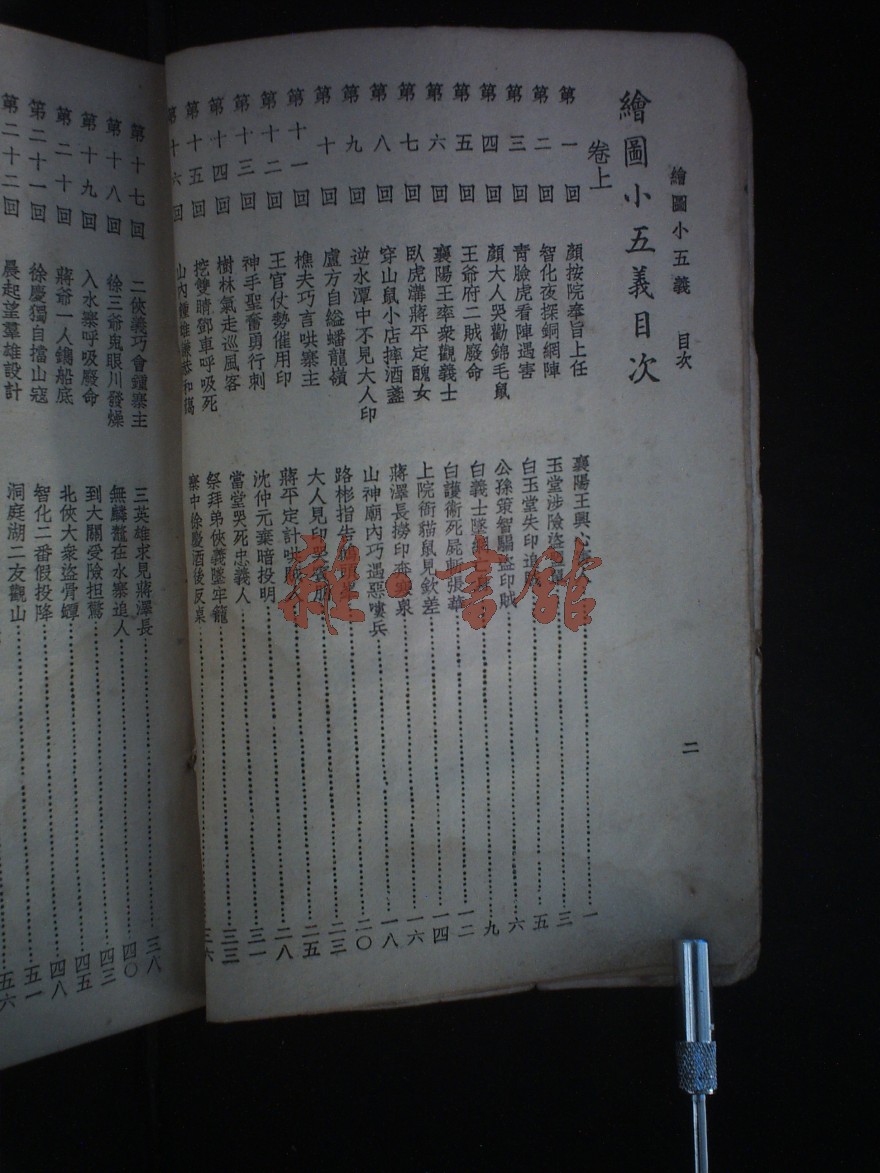 繪圖小五義 目次 二
繪圖小五義目次
卷上
第一回 顏按院奉旨上任 襄陽王興心 一
第二回 智化夜探銅網陣 玉堂涉險盜 三
第三回 青臉虎看陣遇害 白玉堂失印追 五
第四回 顏大人哭勸錦毛鼠 公孫策智騙盜印賊 六
第五回 王爺府二賊廢命 白義士墜 九
第六回 襄陽王率衆觀義士 白護衞死屍斬張華 一二
第七回 臥虎溝蔣平定醜女 上院衙貓鼠見欽差 一四
第八回 穿山鼠小店摔酒盞 蔣澤長撈印奔寒泉 一六
第九回 逆水潭中不見大人印 山神廟內巧遇惡嘍兵 一八
第十回 盧方自縊蟠龍嶺 路彬指告 二〇
第十一回 樵夫巧言哄寨主 大人見印 二三
第十二回 王官仗勢催用印 蔣平定計哄 二五
第十三回 神手聖奮勇行刺 沈仲元棄暗投明 二八
第十四回 樹林氣走巡風客 當堂哭死忠義人 三一
第十五回 挖雙睛鄧車呼吸死 祭拜弟俠義墜牢籠 三三
第十六回 山內鍾雄謙恭和藹 寨中徐慶酒後反桌 三六
第十七回 二俠義巧會鍾寨主 三英雄求見蔣澤長 三八
第十八回 徐三爺鬼眼川發燥 無鱗鰲在水寨追人 四〇
第十九回 入水寨呼吸廢命 到大關受險担驚 四三
第二十回 蔣爺一人鑿船底 北俠大衆盜骨罈 四五
第二十一回 徐慶獨自擋山寇 智化二番假投降 四八
第二十二回 晨起望羣雄設計 洞庭湖二友觀山 五一
五六
雜·書館